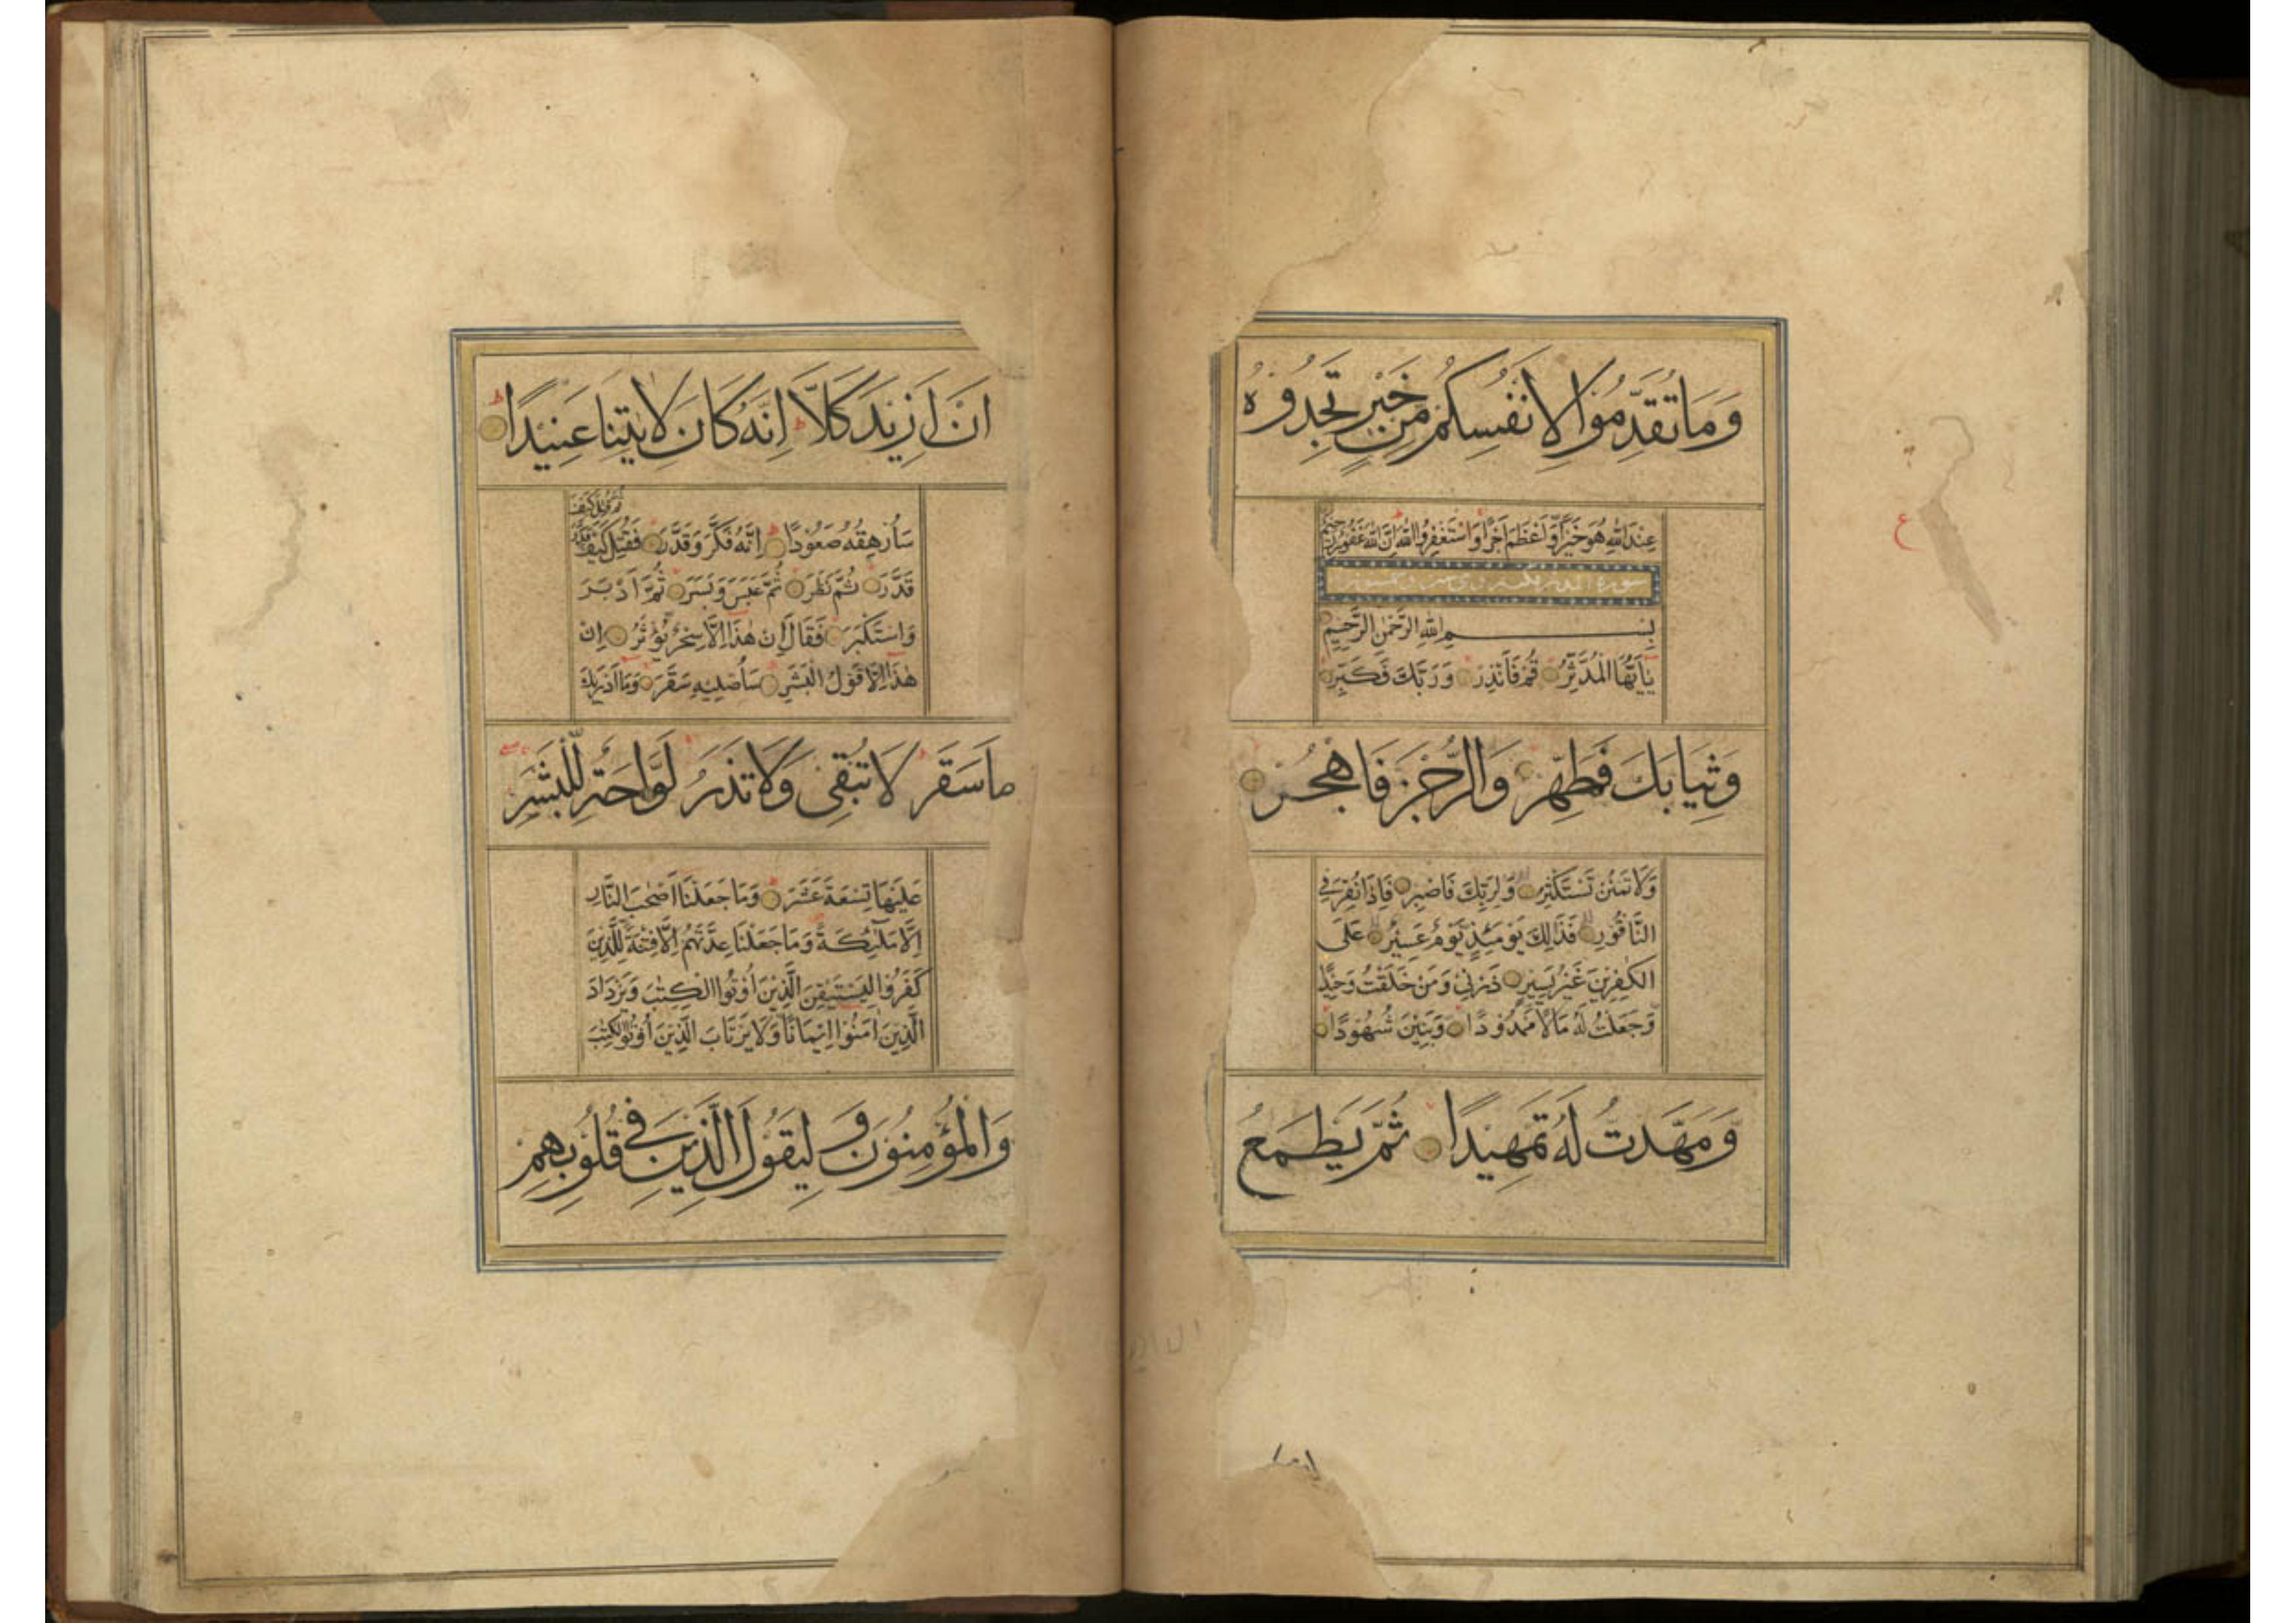 وَمَا تُقَدِّمُوا لِأَنْفُسِكُمْ مِنْ خَيْرٍ تَجِدُوهُ
عِنْدَ اللّٰهِ هُوَ خَيْرًا وَّاَعْظَمَ اَجْرًا وَاسْتَغْفِرُوا اللّٰهَ اِنَّ اللّٰهَ غَفُوْرٌ رَحِيْمٌ
سورة المدثر
بِسْمِ اللّٰهِ الرَّحْمٰنِ الرَّحِيْمِ
يٰاَيُّهَا الْمُدَّثِّرُ قُمْ فَاَنْذِرْ وَرَبَّكَ فَكَبِّرْ
وَثِيَابَكَ فَطَهِّرْ وَالرُّجْزَ فَاهْجُرْ
وَلَا تَمْنُنْ تَسْتَكْثِرُ وَلِرَبِّكَ فَاصْبِرْ فَاِذَا نُقِرَ فِي
النَّاقُوْرِ فَذٰلِكَ يَوْمَئِذٍ يَوْمٌ عَسِيْرٌ عَلَى
الْكٰفِرِيْنَ غَيْرُ يَسِيْرٍ ذَرْنِيْ وَمَنْ خَلَقْتُ وَحِيْدًا
وَّجَعَلْتُ لَهُ مَالًا مَّمْدُوْدًا وَبَنِيْنَ شُهُوْدًا
وَمَهَّدْتُ لَهُ تَمْهِيْدًا ثُمَّ يَطْمَعُ
اَنْ اَزِيْدَ كَلَّا اِنَّهُ كَانَ لِاٰيٰتِنَا عَنِيْدًا
ثم قتل كيف
سَاُرْهِقُهُ صَعُوْدًا اِنَّهُ فَكَّرَ وَقَدَّرَ فَقُتِلَ كَيْفَ قَدَّرَ
قَدَّرَ ثُمَّ نَظَرَ ثُمَّ عَبَسَ وَبَسَرَ ثُمَّ اَدْبَرَ
وَاسْتَكْبَرَ فَقَالَ اِنْ هٰذَا اِلَّا سِحْرٌ يُّؤْثَرُ اِنْ
هٰذَا اِلَّا قَوْلُ الْبَشَرِ سَاُصْلِيْهِ سَقَرَ وَمَا اَدْرٰيكَ
مَا سَقَرُ لَا تُبْقِيْ وَلَا تَذَرُ لَوَّاحَةٌ لِّلْبَشَرِ
عَلَيْهَا تِسْعَةَ عَشَرَ وَمَا جَعَلْنَا اَصْحٰبَ النَّارِ
اِلَّا مَلٰٓئِكَةً وَمَا جَعَلْنَا عِدَّتَهُمْ اِلَّا فِتْنَةً لِّلَّذِيْنَ
كَفَرُوْا لِيَسْتَيْقِنَ الَّذِيْنَ اُوْتُوا الْكِتٰبَ وَيَزْدَادَ
الَّذِيْنَ اٰمَنُوْا اِيْمَانًا وَلَا يَرْتَابَ الَّذِيْنَ اُوْتُوا الْكِتٰبَ
وَالْمُؤْمِنُوْنَ وَلِيَقُوْلَ الَّذِيْنَ فِيْ قُلُوْبِهِمْ